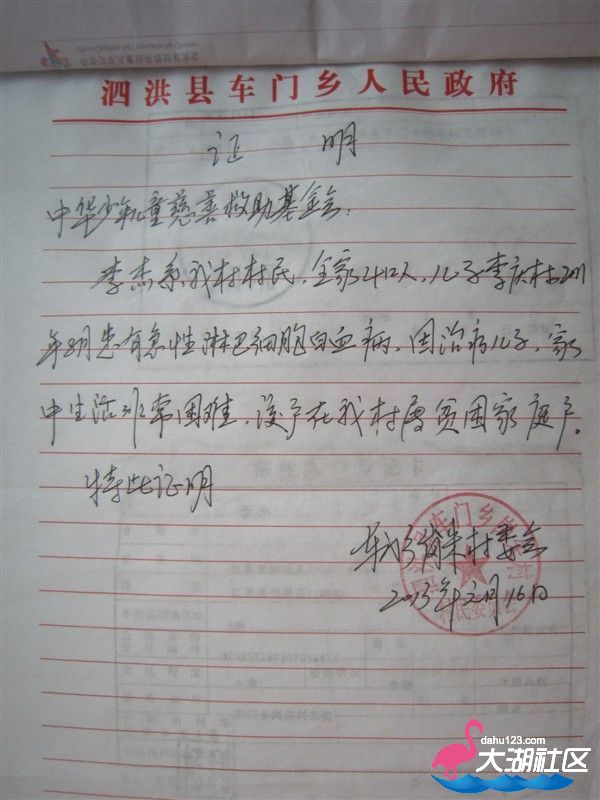 泗洪县车门乡人民政府
证 明
中华少年儿童慈善救助基金会:
李杰系我村村民,全家4口人,儿子李庆村2011
年8月患有急性淋巴细胞白血病,因治病儿子,家
中生活非常困难,该户在我村属贫困家庭户。
特此证明
车门乡 村委会
2013年元月16日
dahu123.com
大湖社区